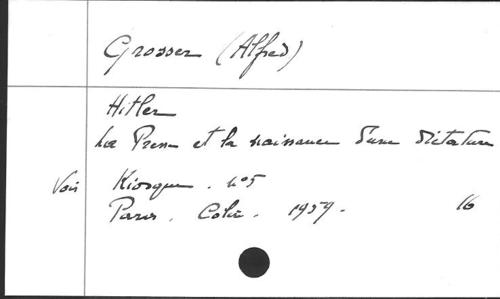 Grosser (Alfred)
Hitler
La Presse et la naissance d'une dictature
Voir Kiosque . n°5
Paris . Colin . 1959 . 16